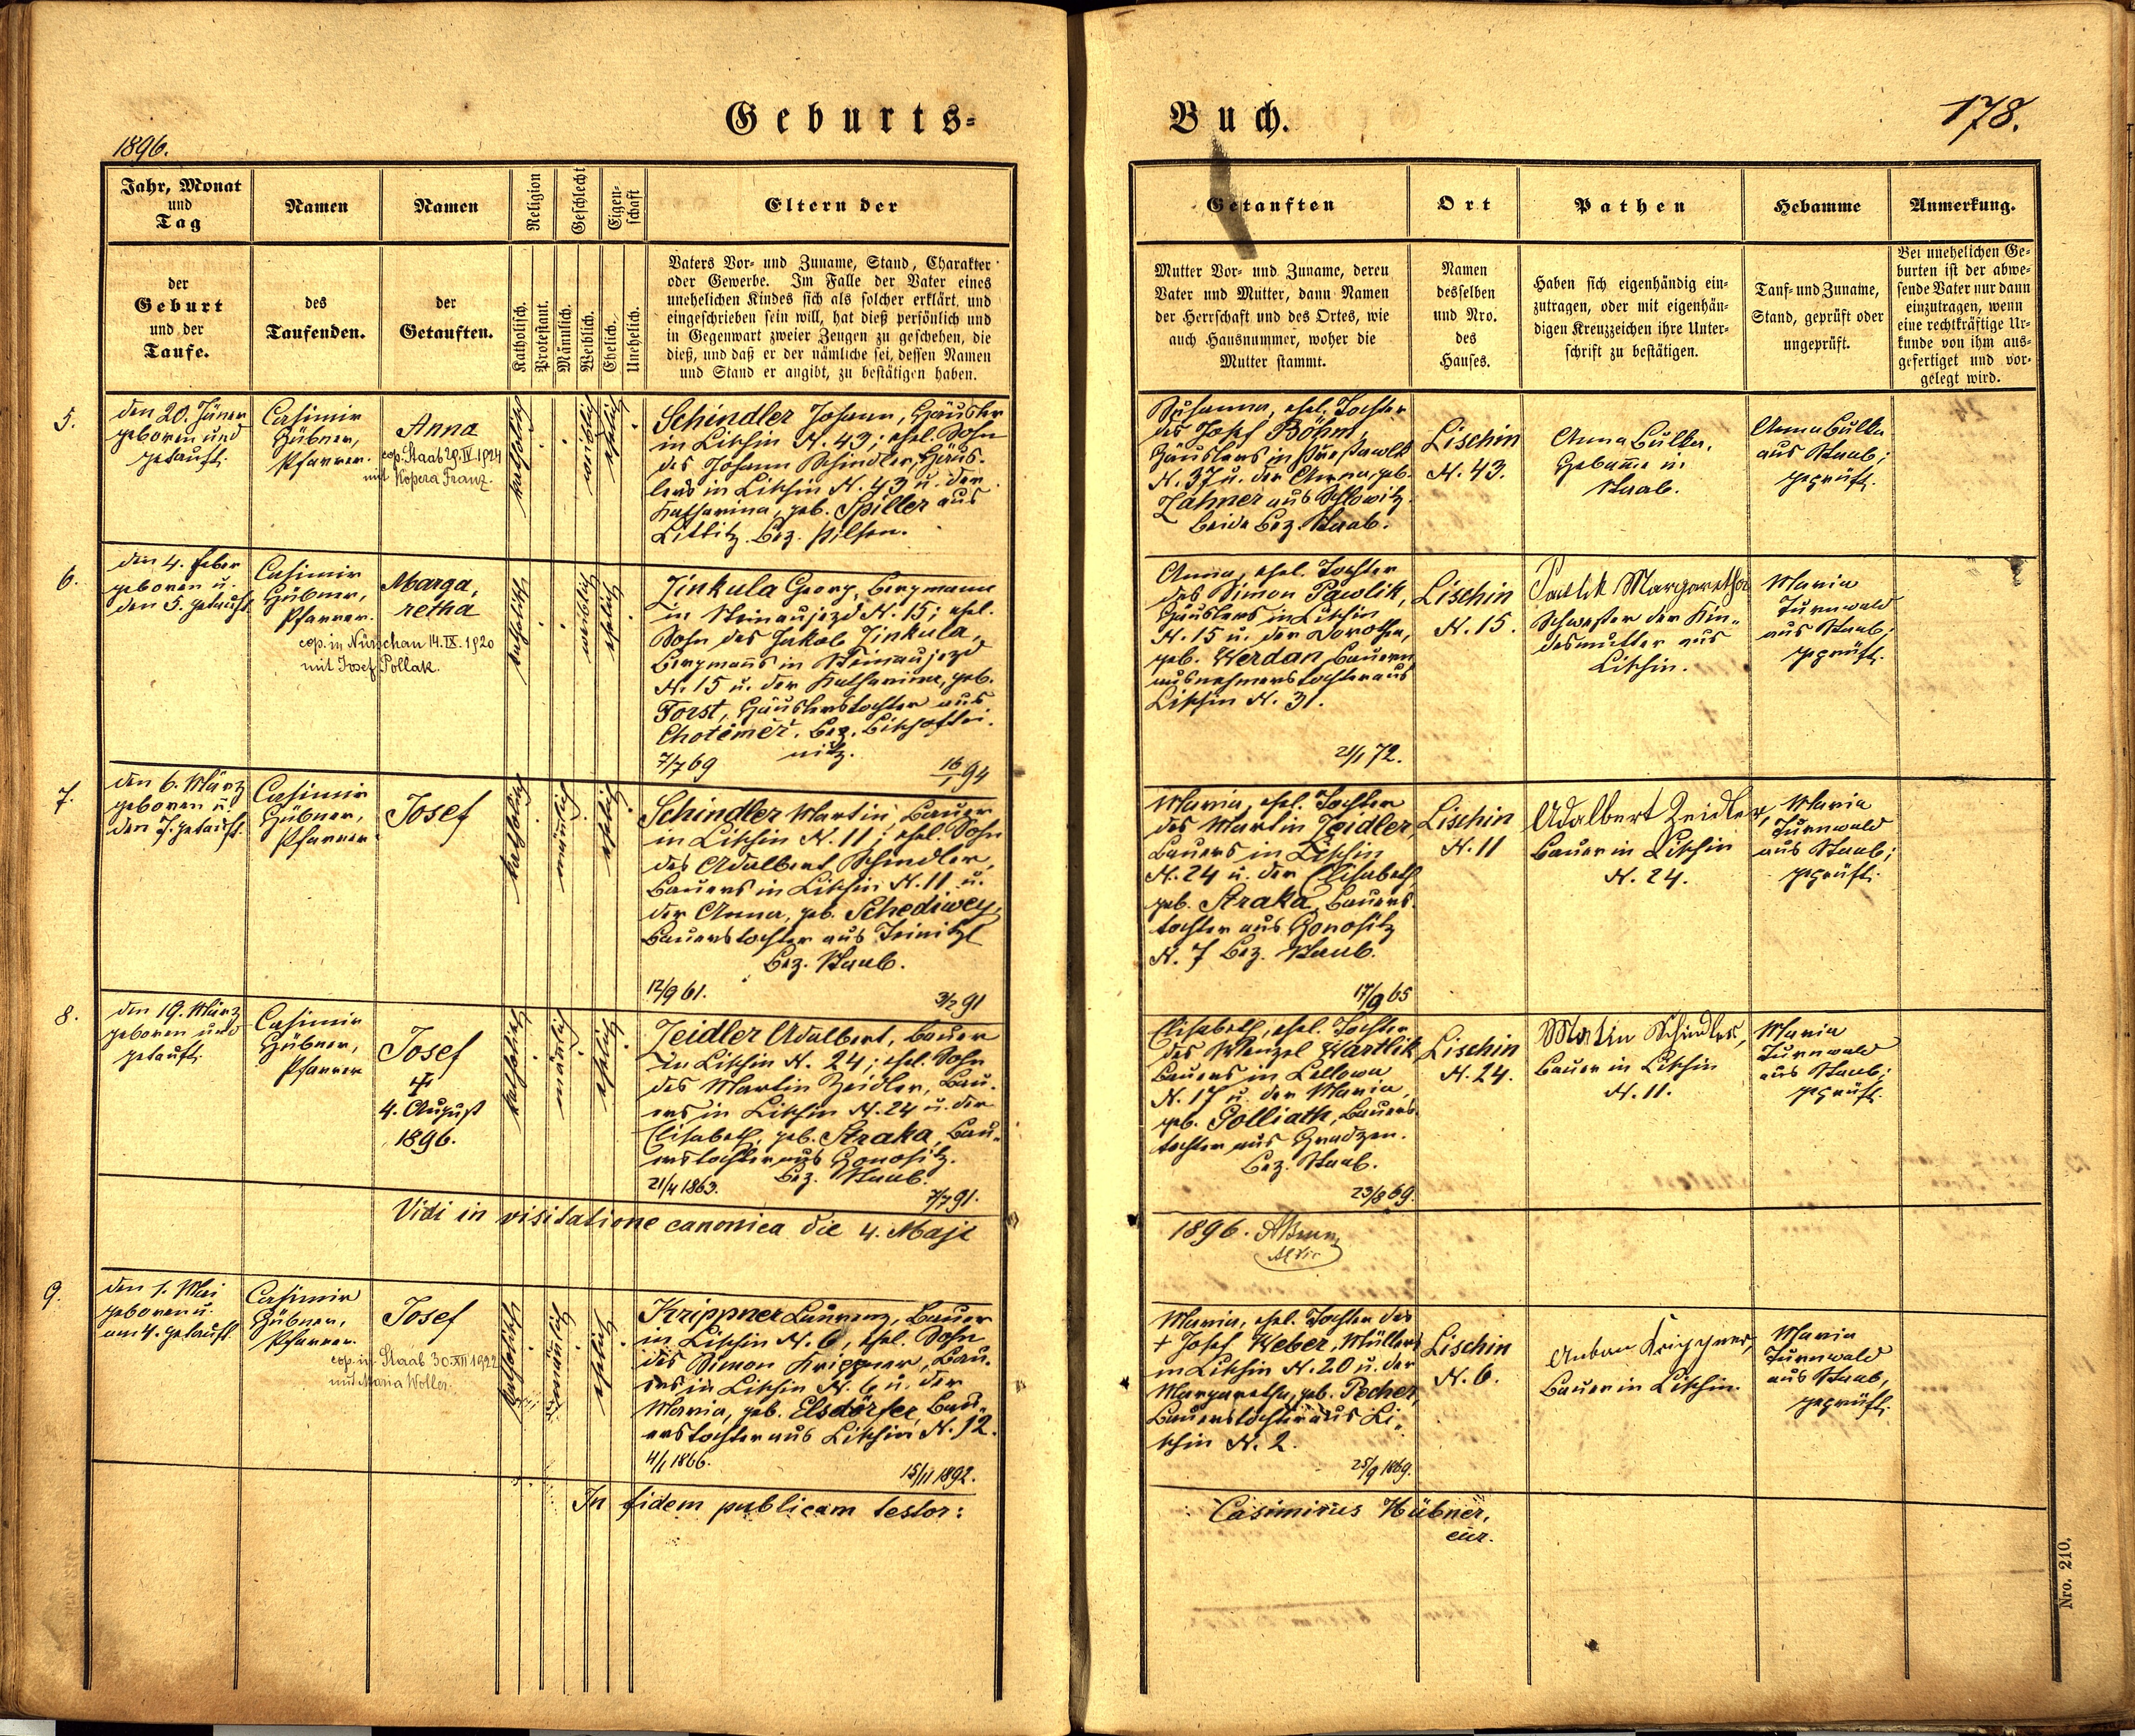 Geburts-
Buch.
178.
1896.
Jahr, Monat
und
Tag
der
Geburt
und der
Taufe.
Namen
des
Taufenden.
Namen
der
Getauften.
Religion
Katholisch.
Protestant.
Geschlecht
Männlich.
Weiblich.
Eigen-
schaft
Ehelich.
Unehelich.
Eltern der
Vaters Vor- und Zuname, Stand, Charakter
oder Gewerbe. Im Falle der Vater eines
unehelichen Kindes sich als solcher erklärt, und
eingeschrieben sein will, hat dieß persönlich und
in Gegenwart zweier Zeugen zu geschehen, die
dieß, und daß er der nämliche sei, dessen Namen
und Stand er angibt, zu bestätigen haben.
Getauften
Mutter Vor- und Zuname, deren
Vater und Mutter, dann Namen
der Herrschaft und des Ortes, wie
auch Hausnummer, woher die
Mutter stammt.
Ort
Namen
desselben
und Nro.
des
Hauses.
Pathen
Haben sich eigenhändig ein-
zutragen, oder mit eigenhän-
digen Kreuzzeichen ihre Unter-
schrift zu bestätigen.
Hebamme
Tauf- und Zuname,
Stand, geprüft oder
ungeprüft.
Anmerkung.
Bei unehelichen Ge-
burten ist der abwe-
sende Vater nur dann
einzutragen, wenn
eine rechtkräftige Ur-
kunde von ihm aus-
gefertiget und vor-
gelegt wird.
5.
den 20. Jäner
geboren und
getauft
Casimir
Hübner,
Pfarrer.
Anna
cop. Staab 29.IV.1924
mit Kopera Franz.
katholisch
weiblich
ehelich
Schindler Johann, Häusler
in Lischin N. 43; ehel. Sohn
des Johann Schindler, Häus-
lers in Lischin N. 43 u. der
Katharina, geb. Spiller aus
Littitz Bez. Pilsen.
Susanna, ehel. Tochter
des Josef Böhm,
Häuslers in
N. 37 u. der Anna, geb.
Zahner aus
beide Bez. Staab.
Lischin
N. 43.
Anna Bulka,
Hebamme in
Staab.
Anna Bulka
aus Staab;
geprüft.
6.
den 4. Feber
geboren u.
den 5. getauft
Casimir
Hübner,
Pfarrer.
Marga,
retha
cop. in Nürschan 14.IX.1920
mit Josef Pollak.
katholisch
weiblich
ehelich
Zinkula Georg, Bergmann
in Steinaujezd N. 15; ehel.
Sohn des Jakob Zinkula,
Bergmanns in Steinaujezd
N. 15 u. der Katharina, geb.
Forst, Häuslerstochter aus
Chotiměř. Bez. Bischoftei-
nitz.
7/7 69
16/1 94
Anna, ehel. Tochter
des Simon Pawlik,
Häuslers in Lischin
N. 15 u. der Dorothea,
geb. Werdan, Bauern
ausnehmerstochter aus
Lischin N. 31.
21/1 72.
Lischin
N. 15.
Pawlik Margaretha
Schwester der Kin-
desmutter aus
Lischin.
Maria
Turnwald
aus Staab;
geprüft.
7.
den 6. März
geboren u.
den 7. getauft.
Casimir
Hübner,
Pfarrer
Josef
katholisch
männlich
ehelich
Schindler Martin, Bauer
in Lischin N. 11; ehel. Sohn
des Adalbert Schindler,
Bauers in Lischin N. 11 u.
der Anna, geb. Schediwey,
Bauerstochter aus Teinitzl
Bez. Staab.
12/9 61.
3/2 91
Maria, ehel. Tochter
des Martin Zeidler,
Bauers in Lischin
N. 24 u. der Elisabeth
geb. Straka, Bauers-
tochter aus Honositz
N. 7 Bez. Staab.
17/9 65
Lischin
N. 11
Adalbert Zeidler,
Bauer in Lischin
N. 24.
Maria
Turnwald
aus Staab;
geprüft.
8.
den 19. März
geboren und
getauft.
Casimir
Hübner,
Pfarrer
Josef
‡
4. August
1896.
katholisch
männlich
ehelich
Zeidler Adalbert, Bauer
in Lischin N. 24; ehel. Sohn
des Martin Zeidler, Bau-
ers in Lischin N. 24 u. der
Elisabeth, geb. Straka, Bau-
erstochter aus Honositz.
Bez. Staab.
21/4 1863.
7/7 91.
Elisabeth, ehel. Tochter
des Wenzel Wartlik
Bauers in Lellowa
N. 17 u. der Maria,
geb. Golliath, Bauers-
tochter aus Hradzen.
Bez. Staab.
23/8 69.
Lischin
N. 24.
Martin Schindler,
Bauer in Lischin
N. 11.
Maria
Turnwald
aus Staab;
geprüft.
Vidi in visitatione canonica die 4. Maji
1896.
9.
den 1. Mai
geboren u.
am 4. getauft.
Casimir
Hübner,
Pfarrer.
Josef
cop. in Staab 30.XII 1922
mit Maria Woller.
katholisch
männlich
ehelich
Krippner Laurenz, Bauer
in Lischin N. 6, ehel. Sohn
des Simon Krippner, Bau-
ers in Lischin N. 6 u. der
Maria, geb. Elsdörfer, Bau-
erstochter aus Lischin N. 12.
4/1 1866.
15/11 1892.
Maria, ehel. Tochter des
+ Josef Weber, Müllers
in Lischin N. 20 u. der
Margaretha, geb. Pecher,
Bauerstochter aus Li-
schin N. 2.
25/9 1869.
Lischin
N. 6.
Anton Krippner,
Bauer in Lischin.
Maria
Turnwald
aus Staab,
geprüft.
In fidem publicam testor:
Casimirus Hübner,
cur.
Nro. 210.